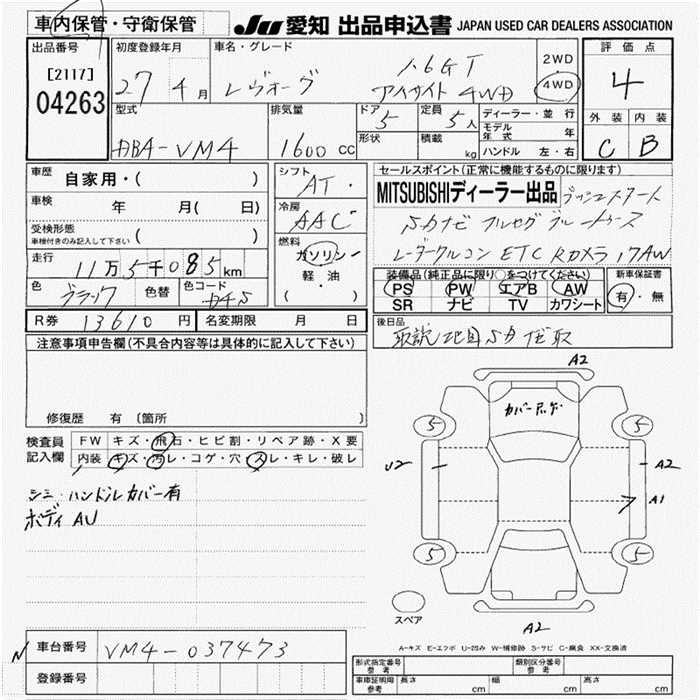 車内保管・守衛保管
JU 愛知 出品申込書 JAPAN USED CAR DEALERS ASSOCIATION
出品番号
[2117]
04263
初度登録年月
27年4月
車名・グレード
レヴォーグ
1.6GT
アイサイト 4WD
2WD
4WD
評価点
4
外装 内装
C B
型式
DBA-VM4
排気量
1600 cc
ドア
5
定員
5人
形状
積載
kg
ディーラー・並行
モデル年式 年
ハンドル 左・右
車歴
自家用・( )
車検 年 月(日 )
受検形態
車検付きのみ記入して下さい ( )
走行
11万5千085km
色
ブラック
色替
色コード
D4S
シフト
AT・
冷房
AAC
燃料
ガソリン
軽・油
( )
セールスポイント(正常に機能するものに限ります)
MITSUBISHIディーラー出品 プッシュスタート
SDナビ フルセグ ブルートゥース
レーダークルコン ETC Rカメラ 17AW
装備品(純正品に限り○をつけてください)
PS PW エアB AW
SR ナビ TV カワシート
新車保証書
有・無
R券 13610円
名変期限 月 日
後日品
取説 地図SD ナビ取
注意事項申告欄(不具合内容等は具体的に記入して下さい)
修復歴 有 〔箇所 〕
検査員
記入欄
FW キズ・飛石・ヒビ割・リペア跡・X要
内装 キズ・汚レ・コゲ・穴・スレ・キレ・破レ
シミ・ハンドルカバー有
ボディ AU
A2
カバーアンダー
5 5
U2 A2
A1
5 5
スペア
A2
A-キズ E-エクボ U-凹み W-補修跡 S-サビ C-腐食 XX-交換済
N
車台番号 VM4-037473
登録番号
形式指定番号
参考
類別区分番号
参考
車庫証明用
参考
長さ cm 幅 cm 高さ cm